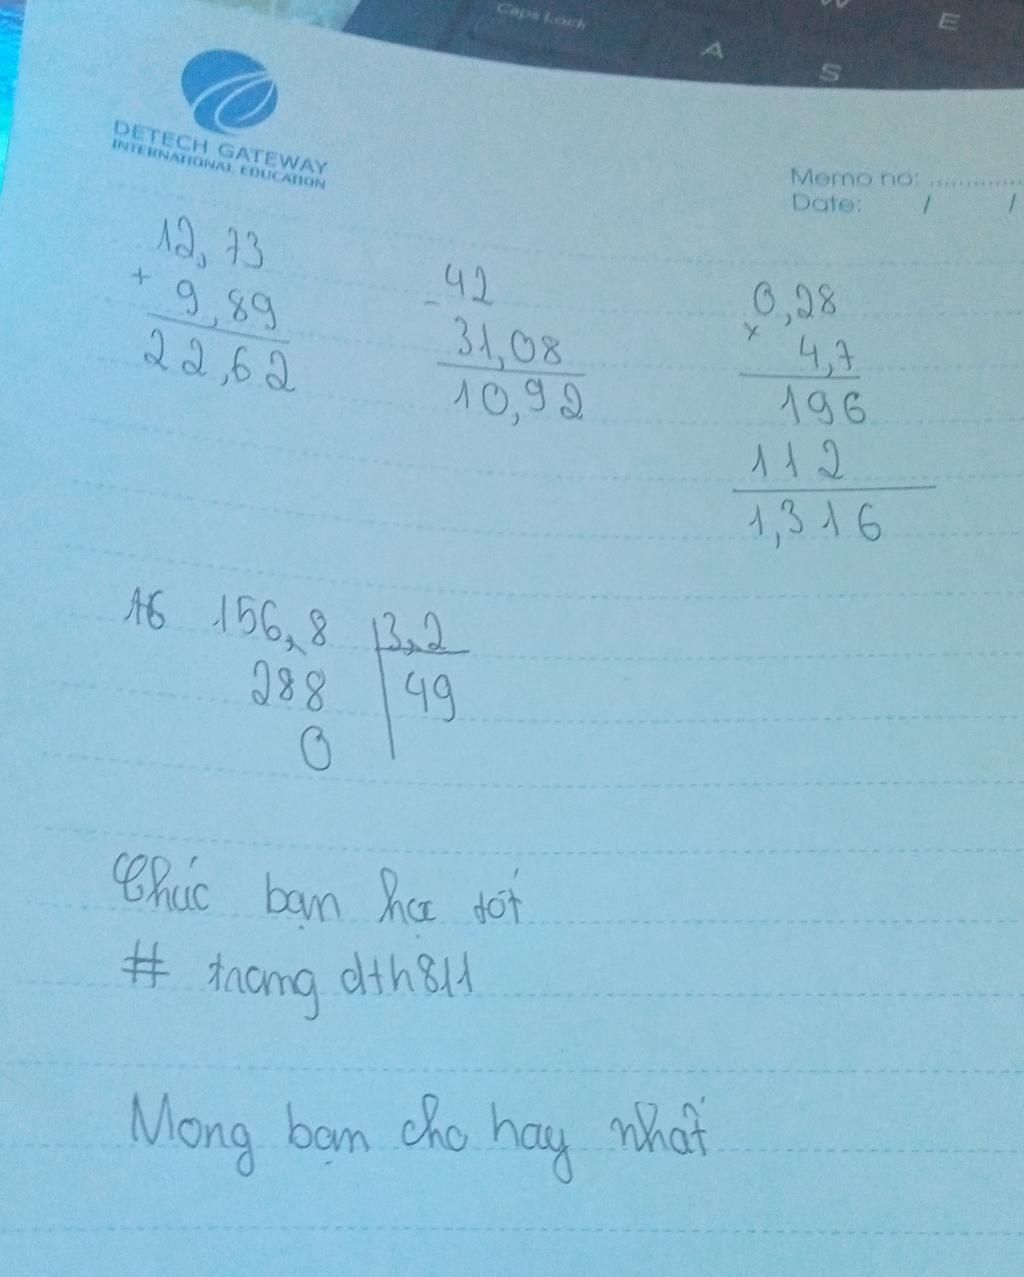 Caps Lock
A
S
E
DETECH GATEWAY
INTERNATIONAL EDUCATION
Memo no: ..............
Date: / /
12,73
+ 9,89
22,62
- 42
31,08
10,92
0,28
x 4,7
196
112
1,316
156,8 3,2
288 49
0
Chúc bạn học tốt
# trang dth811
Mong bạn cho hay nhất